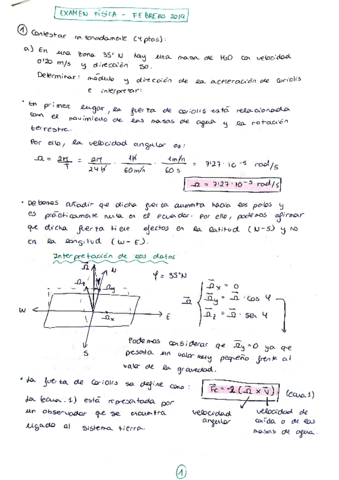 EXAMEN FÍSICA - FEBRERO 2019
① Contestar razonadamente (4 ptos):
a) En una zona 35° N hay una masa de H2O con velocidad
0'20 m/s y dirección SO.
Determinar: módulo y dirección de la aceleración de coriolis
e interpretar:
• En primer lugar, la fuerza de coriolis está relacionada
con el movimiento de las masas de agua y la rotación
terrestre.
Por ello, la velocidad angular es:
Ω = 2π/T = 2π/24h · 1h/60min · 1min/60s = 7'27·10⁻⁵ rad/s
Ω = 7'27·10⁻⁵ rad/s
• Debemos añadir que dicha fuerza aumenta hacia los polos y
es prácticamente nula en el ecuador. Por ello, podemos afirmar
que dicha fuerza tiene efectos en la latitud (N-S) y no
en la longitud (W-E).
Interpretación de los datos
Ω N
Ωz Ωy
W E
Ωx
S
φ = 35°N
Ω { Ωx = 0
Ωy = Ω · cos φ
Ωz = Ω · sen φ
Podemos considerar que Ωy = 0 ya que
presenta un valor muy pequeño frente al
valor de la gravedad.
• La fuerza de coriolis se define como: Fc = -2 (Ω × V) (ecua. 1)
La (ecua. 1) está representada por
un observador que se encuentra
ligado al sistema tierra.
velocidad
angular
velocidad de
caída o de las
masas de agua.
①